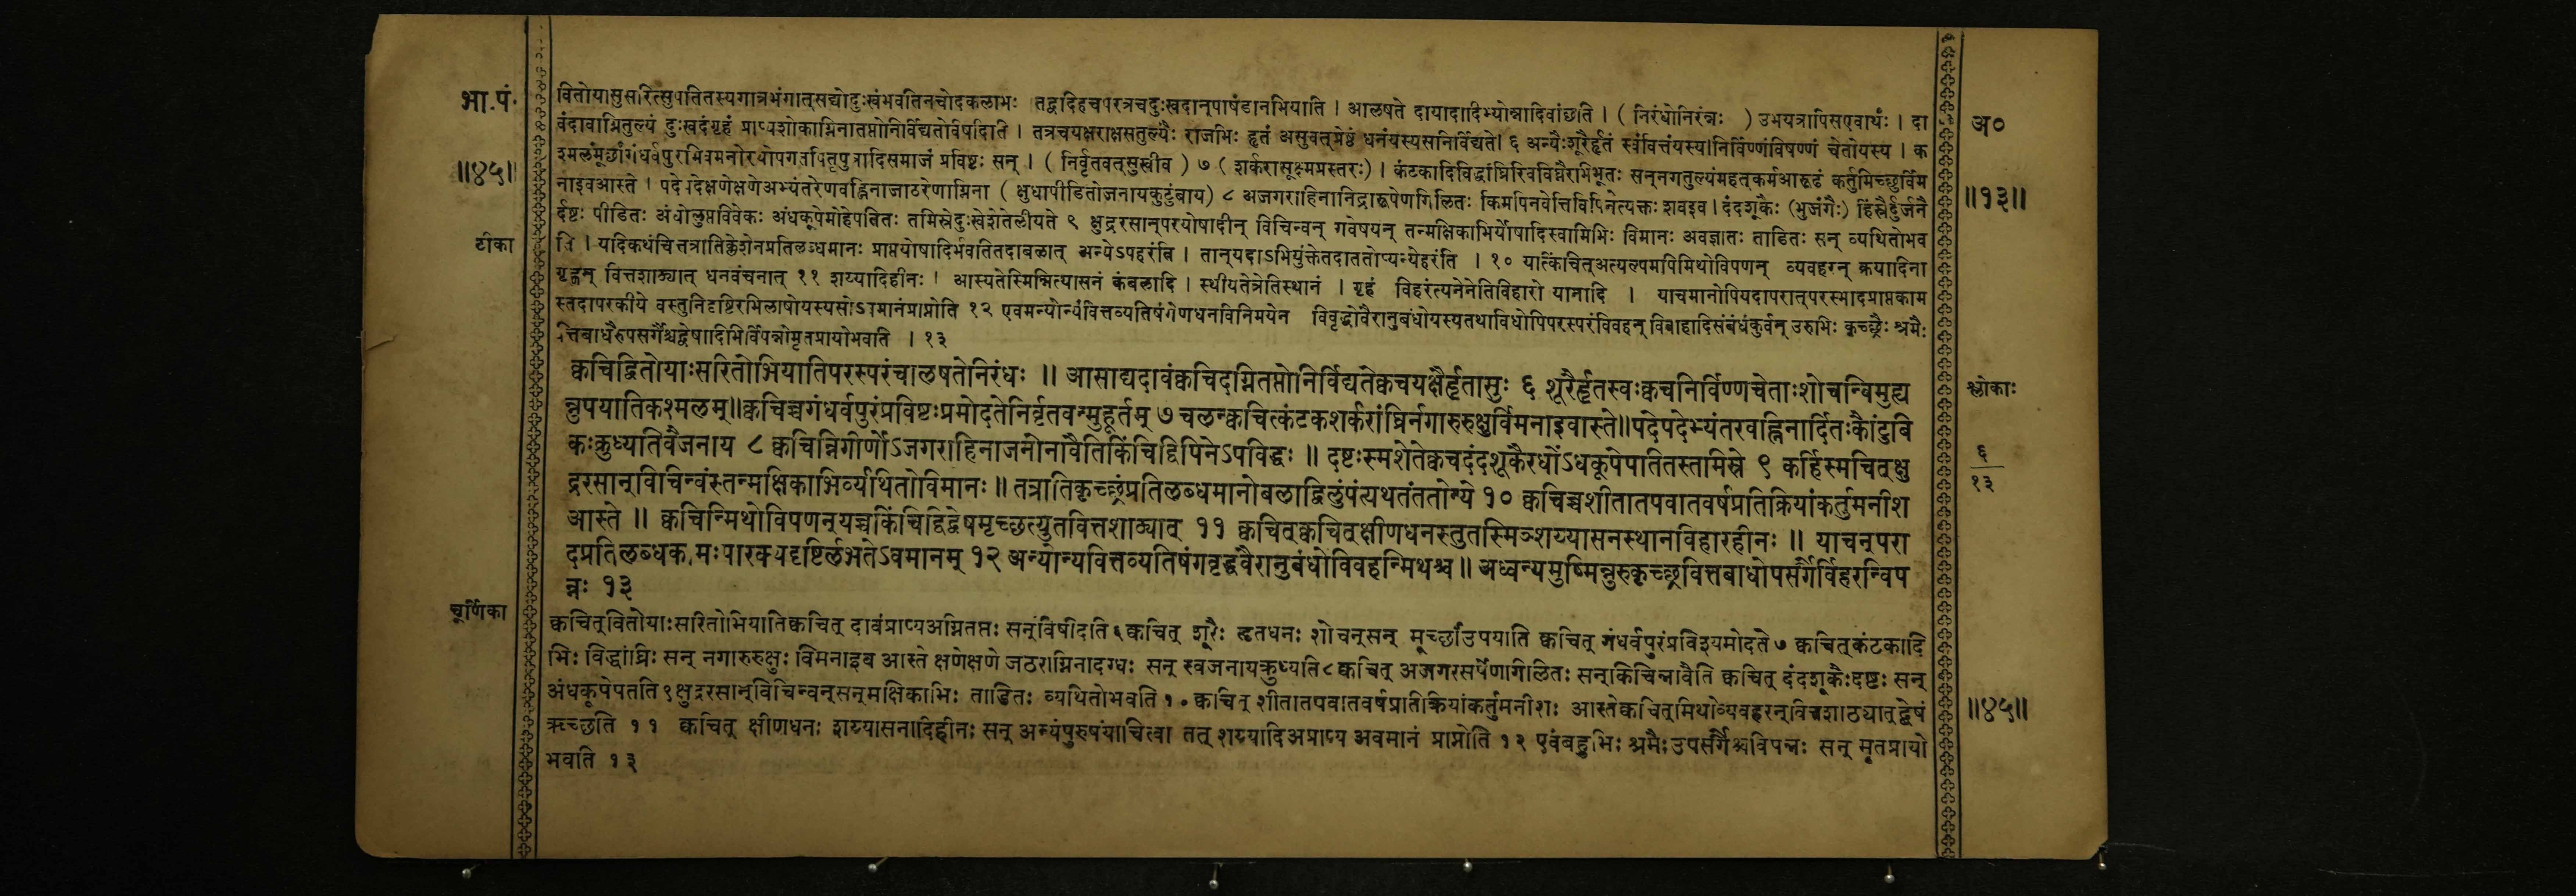 भा.पं.
॥४५॥
टीका
वितोयासुसरित्सुपतितस्यगात्रभंगात्सद्योदुःखंभवतिनचोदकलाभः तद्वदिहचपरत्रचदुःखदान्पाषंडानभियाति । आलषते दायादादिभ्योन्नादिवांछति । ( निरंधोनिरन्नः ) उभयत्रापिसएवार्थः । दा
वंदावाग्नितुल्यं दुःखदंगृहं प्राप्यशोकाग्निनातप्तोनिर्विद्यतेविषीदति । तत्रचयक्षराक्षसतुल्यैः राजभिः हृतं असुवत्प्रेष्ठं धनंयस्यसनिर्विद्यते। ६ अन्यैःशूरैर्हृतं स्वंवित्तंयस्य।निर्विण्णंविषण्णं चेतोयस्य । क
श्मलंमूर्छांगंधर्वपुरमिवमनोरथोपगतपितृपुत्रादिसमाजं प्रविष्टः सन् । ( निर्वृतवत्सुखीव ) ७ ( शर्करासूक्ष्मप्रस्तरः ) । कंटकादिविद्धांघ्रिरिवविघ्नैरभिभूतः सन्नगतुल्यंमहत्कर्मआरूढं कर्तुमिच्छुर्विम
नाइवआस्ते । पदेपदेक्षणेक्षणेअभ्यंतरेणवह्निनाजाठरेणाग्निना ( क्षुधापीडितोजनायकुटुंबाय) ८ अजगराहिनानिद्रारूपेणगिलितः किमपिनवेत्तिविपिनेत्यक्तः शवइव । दंदशूकैः (भुजंगैः) हिंस्रैर्दुर्जनै
र्दष्टः पीडितः अंधोलुप्तविवेकः अंधकूपेमोहेपतितः तमिस्रेदुःखेशेतेलीयते ९ क्षुद्ररसान्परयोषादीन् विचिन्वन् गवेषयन् तन्मक्षिकाभिर्योषादिस्वामिभिः विमानः अवज्ञातः ताडितः सन् व्यथितोभव
ति । यदिकथंचित्तत्रातिक्लेशेनप्रतिलब्धमानः प्राप्तयोषादिर्भवतितदाबळात् अन्येऽपहरंति । तान्यदाऽभियुंक्तेतदाततोप्यन्येहरंति । १० यत्किंचित्अत्यल्पमपिमिथोविपणन् व्यवहरन् क्रयादिना
गृह्णन् वित्तशाठ्यात् धनवंचनात् ११ शय्यादिहीनः । आस्यतेस्मिन्नित्यासनं कंबलादि । स्थीयतेत्रेतिस्थानं । गृहं विहरंत्यनेनेतिविहारो यानादि । याचमानोपियदापरात्परस्मादप्राप्तकाम
स्तदापरकीये वस्तुनिदृष्टिरभिलाषोयस्यसोऽवमानंप्राप्नोति १२ एवमन्योन्यंवित्तव्यतिषंगेणधनविनिमयेन विवृद्धोवैरानुबंधोयस्यतथाविधोपिपरस्परंविवहन् विवाहादिसंबंधंकुर्वन् उरुभिः कृच्छ्रैः श्रमैः
वित्तबाधैरुपसर्गैश्चद्वेषादिभिर्विपन्नोमृतप्रायोभवति । १३
क्वचिद्वितोयाःसरितोभियातिपरस्परंचालषतेनिरंधः ॥ आसाद्यदावंक्वचिदग्नितप्तोनिर्विद्यतेक्वचयक्षैर्हृतासुः ६ शूरैर्हृतस्वःक्वचनिर्विण्णचेताःशोचन्विमुह्य
न्नुपयातिकश्मलम्॥क्वचिच्चगंधर्वपुरंप्रविष्टःप्रमोदतेनिर्वृतवन्मुहूर्तम् ७ चलन्क्वचित्कंटकशर्करांघ्रिर्नगारुरुक्षुर्विमनाइवास्ते॥पदेपदेभ्यंतरवह्निनार्दितःकौटुंबि
कःक्रुध्यतिवैजनाय ८ क्वचिन्निगीर्णोऽजगराहिनाजनोनावैतिकिंचिद्विपिनेऽपविद्धः ॥ दष्टःस्मशेतेक्वचदंदशूकैरंधोंऽधकूपेपतितस्तामिस्रे ९ कर्हिस्मचित्क्षु
द्ररसान्विचिन्वंस्तन्मक्षिकाभिर्व्यथितोविमानः ॥ तत्रातिकृच्छ्रंप्रतिलब्धमानोबलाद्विलुंपंत्यथतंततोन्ये १० क्वचिच्चशीतातपवातवर्षप्रतिक्रियांकर्तुमनीश
आस्ते ॥ क्वचिन्मिथोविपणन्यच्चकिंचिद्विद्वेषमृच्छत्युतवित्तशाठ्यात् ११ क्वचित्क्वचित्क्षीणधनस्तुतस्मिञ्शय्यासनस्थानविहारहीनः ॥ याचन्परा
दप्रतिलब्धकामःपारक्यदृष्टिर्लभतेऽवमानम् १२ अन्योन्यवित्तव्यतिषंगवृद्धवैरानुबंधोविवहन्मिथश्च ॥ अध्वन्यमुष्मिन्नुरुकृच्छ्रवित्तबाधोपसर्गैर्विहरन्विप
न्नः १३
चूर्णिका
क्वचित्वितोयाःसरितोभियातिक्वचित् दावंप्राप्यअग्नितप्तः सन्विषीदति ६ क्वचित् शूरैः हृतधनः शोचन्सन् मूर्च्छांउपयाति क्वचित् गंधर्वपुरंप्रविश्यमोदते ७ क्वचित्कंटकादि
भिः विद्धांघ्रिः सन् नगारुरुक्षुः विमनाइव आस्ते क्षणेक्षणे जठराग्निनादग्धः सन् स्वजनायक्रुध्यति ८ क्वचित् अजगरसर्पेणगिलितः सन्किंचिन्नावैति क्वचित् दंदशूकैःदष्टः सन्
अंधकूपेपतति ९ क्षुद्ररसान्विचिन्वन्सन्मक्षिकाभिः ताडितः व्यथितोभवति १० क्वचित् शीतातपवातवर्षप्रतिक्रियांकर्तुमनीशः आस्तेक्वचित्मिथोव्यवहरन्वित्तशाठ्यात्द्वेषं
ऋच्छति ११ क्वचित् क्षीणधनः शय्यासनादिहीनः सन् अन्यंपुरुषंयाचित्वा तत् शय्यादिअप्राप्य अवमानं प्राप्नोति १२ एवंबहुभिः श्रमैः उपसर्गैश्चविपन्नः सन् मृतप्रायो
भवति १३
अ०
॥१३॥
श्लोकाः
६
१३
॥४५॥